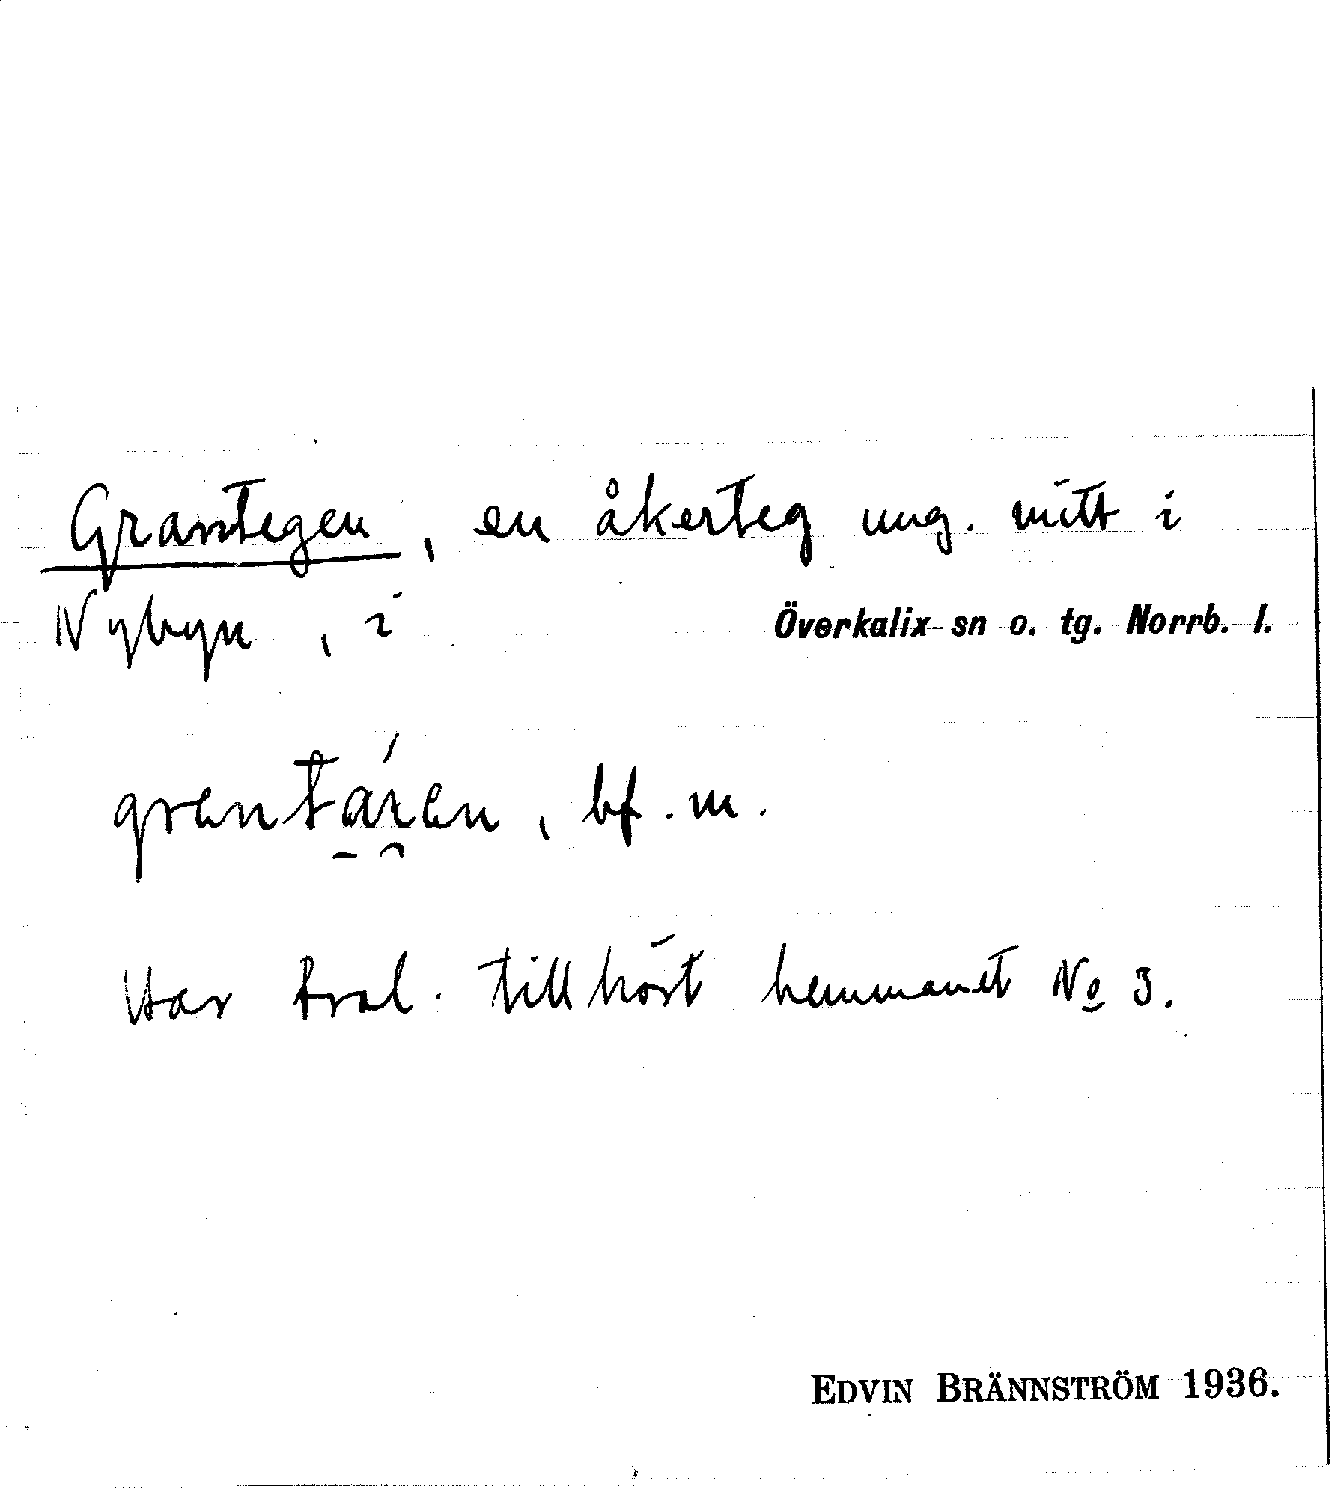 Grantegen, en åkerteg ung. mitt i
Nybyn, i Överkalix sn o. tg. Norrb. l.
bf. m.
Har tillhört hemmanet No 3.
EDVIN BRÄNNSTRÖM 1936.